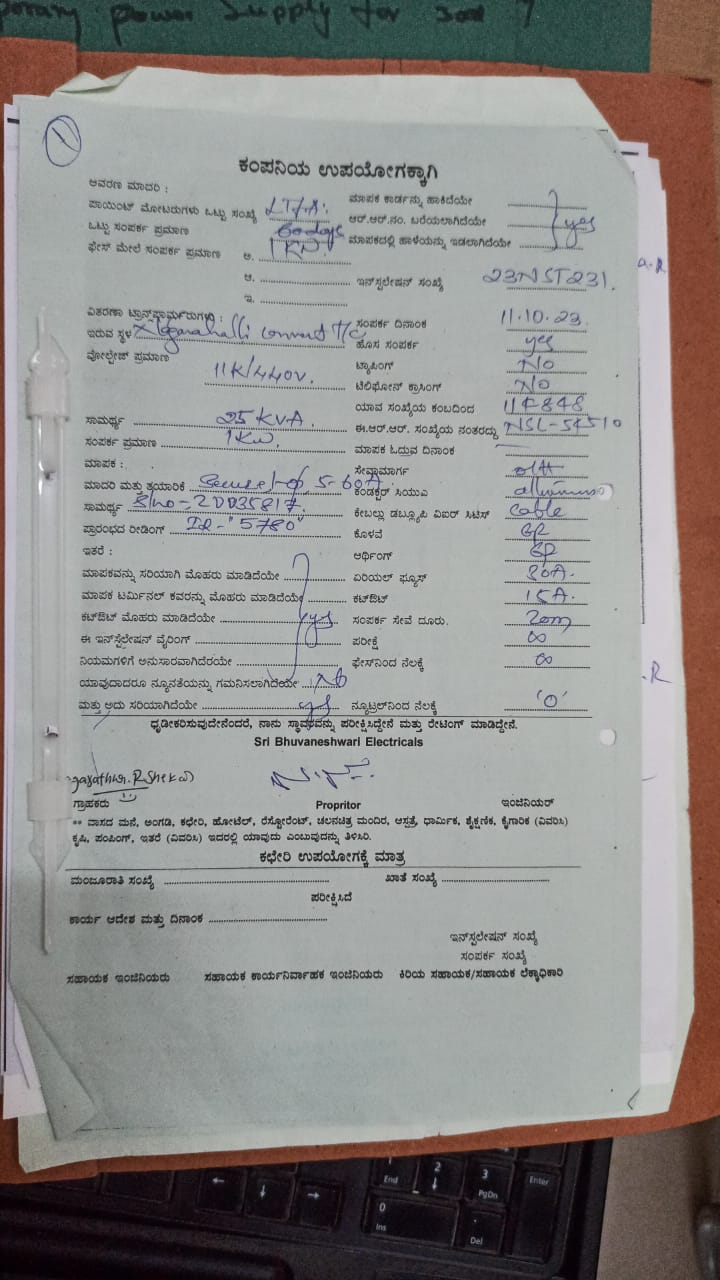 porary power supply for 7
1
ಕಂಪನಿಯ ಉಪಯೋಗಕ್ಕಾಗಿ
ಆವರಣ ಮಾದರಿ :
ಮಾಪಕ ಕಾರ್ಡನ್ನು ಹಾಕಿದೆಯೇ
ಪಾಯಿಂಟ್ ಮೋಟರುಗಳು ಒಟ್ಟು ಸಂಖ್ಯೆ
ಆರ್.ಆರ್.ನಂ. ಬರೆಯಲಾಗಿದೆಯೇ yes
ಒಟ್ಟು ಸಂಪರ್ಕ ಪ್ರಮಾಣ 60 days
ಮಾಪಕದಲ್ಲಿ ಹಾಳೆಯನ್ನು ಇಡಲಾಗಿದೆಯೇ
ಫೇಸ್ ಮೇಲೆ ಸಂಪರ್ಕ ಪ್ರಮಾಣ ಅ.
ಆ.
ಇನ್‌ಸ್ಟಲೇಷನ್ ಸಂಖ್ಯೆ 23NST231.
ಇ.
ವಿತರಣಾ ಟ್ರಾನ್ಸ್‌ಫಾರ್ಮರುಗಳು :
ಸಂಪರ್ಕ ದಿನಾಂಕ 11.10.23
ಇರುವ ಸ್ಥಳ T/C
ಹೊಸ ಸಂಪರ್ಕ yes
ವೋಲ್ಟೇಜ್ ಪ್ರಮಾಣ 11K/440V.
ಟ್ಯಾಪಿಂಗ್ No
ಟೆಲಿಫೋನ್ ಕ್ರಾಸಿಂಗ್ No
ಯಾವ ಸಂಖ್ಯೆಯ ಕಂಬದಿಂದ
ಸಾಮರ್ಥ್ಯ 25 KVA.
ಈ.ಆರ್.ಆರ್. ಸಂಖ್ಯೆಯ ನಂತರದ್ದು
ಸಂಪರ್ಕ ಪ್ರಮಾಣ 1KW
ಮಾಪಕ ಓದುವ ದಿನಾಂಕ
ಮಾಪಕ :
ಸೇವಾಮಾರ್ಗ
ಮಾದರಿ ಮತ್ತು ತಯಾರಿಕೆ Secure 5-60A
ಕಂಡಕ್ಟರ್ ಸಿಯುಎ
ಸಾಮರ್ಥ್ಯ
ಕೇಬಲ್ಲು ಡಬ್ಲ್ಯೂಪಿ ವಿಐರ್ ಸಿಟಿಸ್ cable
ಪ್ರಾರಂಭದ ರೀಡಿಂಗ್ IR-"5780"
ಕೊಳವೆ GP
ಇತರೆ :
ಆರ್ಥಿಂಗ್ GP
ಮಾಪಕವನ್ನು ಸರಿಯಾಗಿ ಮೊಹರು ಮಾಡಿದೆಯೇ
ಏರಿಯಲ್ ಫ್ಯೂಸ್ 30A.
ಮಾಪಕ ಟರ್ಮಿನಲ್ ಕವರನ್ನು ಮೊಹರು ಮಾಡಿದೆಯೇ
ಕಟ್‌ಔಟ್ 15A.
ಕಟ್‌ಔಟ್ ಮೊಹರು ಮಾಡಿದೆಯೇ yes
ಸಂಪರ್ಕ ಸೇವೆ ದೂರು. 20m
ಈ ಇನ್‌ಸ್ಟೆಲೇಷನ್ ವೈರಿಂಗ್
ಪರೀಕ್ಷೆ ∞
ನಿಯಮಗಳಿಗೆ ಅನುಸಾರವಾಗಿದೆರಯೇ
ಫೇಸ್‌ನಿಂದ ನೆಲಕ್ಕೆ ∞
ಯಾವುದಾದರೂ ನ್ಯೂನತೆಯನ್ನು ಗಮನಿಸಲಾಗಿದೆಯೇ No
ಮತ್ತು ಅದು ಸರಿಯಾಗಿದೆಯೇ yes
ನ್ಯೂಟ್ರಲ್‌ನಿಂದ ನೆಲಕ್ಕೆ '0'
ಧೃಡೀಕರಿಸುವುದೇನೆಂದರೆ, ನಾನು ಸ್ಥಾವರವನ್ನು ಪರೀಕ್ಷಿಸಿದ್ದೇನೆ ಮತ್ತು ರೇಟಿಂಗ್ ಮಾಡಿದ್ದೇನೆ.
Sri Bhuvaneshwari Electricals
ಗ್ರಾಹಕರು Propritor ಇಂಜಿನಿಯರ್
** ವಾಸದ ಮನೆ, ಅಂಗಡಿ, ಕಛೇರಿ, ಹೋಟೆಲ್, ರೆಸ್ಟೋರೆಂಟ್, ಚಲನಚಿತ್ರ ಮಂದಿರ, ಆಸ್ಪತ್ರೆ, ಧಾರ್ಮಿಕ, ಶೈಕ್ಷಣಿಕ, ಕೈಗಾರಿಕ (ವಿವರಿಸಿ)
ಕೃಷಿ, ಪಂಪಿಂಗ್, ಇತರೆ (ವಿವರಿಸಿ) ಇದರಲ್ಲಿ ಯಾವುದು ಎಂಬುವುದನ್ನು ತಿಳಿಸಿರಿ.
ಕಛೇರಿ ಉಪಯೋಗಕ್ಕೆ ಮಾತ್ರ
ಮಂಜೂರಾತಿ ಸಂಖ್ಯೆ ಖಾತೆ ಸಂಖ್ಯೆ
ಪರೀಕ್ಷಿಸಿದೆ
ಕಾರ್ಯ ಆದೇಶ ಮತ್ತು ದಿನಾಂಕ
ಇನ್‌ಸ್ಟಲೇಷನ್ ಸಂಖ್ಯೆ
ಸಂಪರ್ಕ ಸಂಖ್ಯೆ
ಸಹಾಯಕ ಇಂಜಿನಿಯರು ಸಹಾಯಕ ಕಾರ್ಯನಿರ್ವಾಹಕ ಇಂಜಿನಿಯರು ಕಿರಿಯ ಸಹಾಯಕ/ಸಹಾಯಕ ಲೆಕ್ಕಾಧಿಕಾರಿ
1 End
2
3 PgDn
Enter
0 Ins
. Del